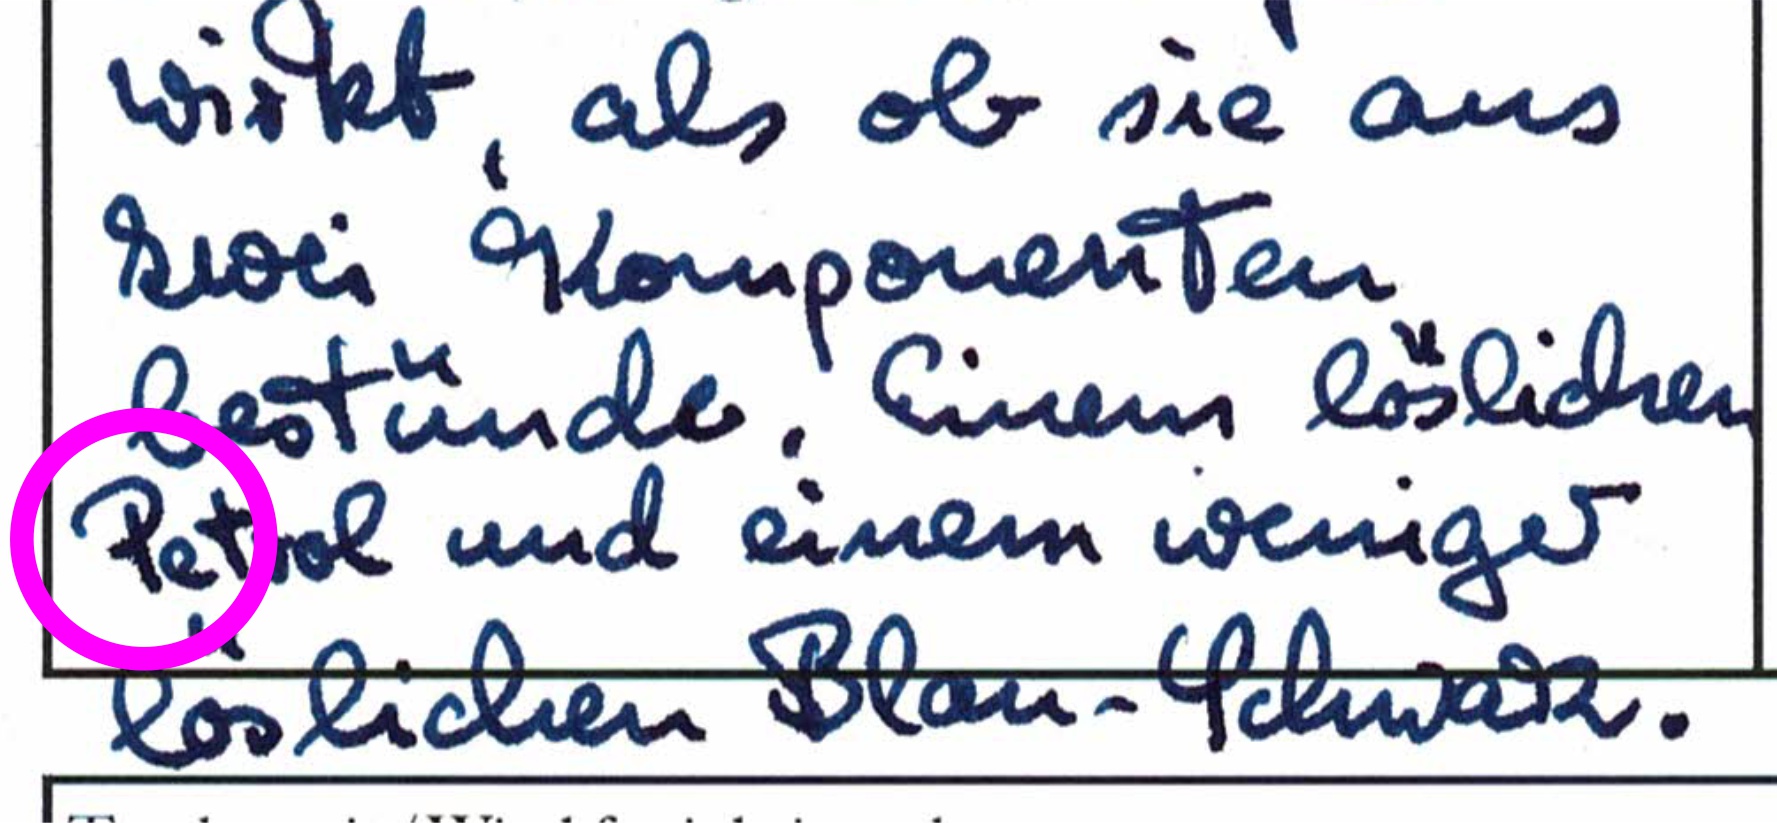 wirkt, als ob sie aus
zwei Komponenten
bestünde. Einem löslichen
Petrol und einem weniger
löslichen Blau-Schwarz.